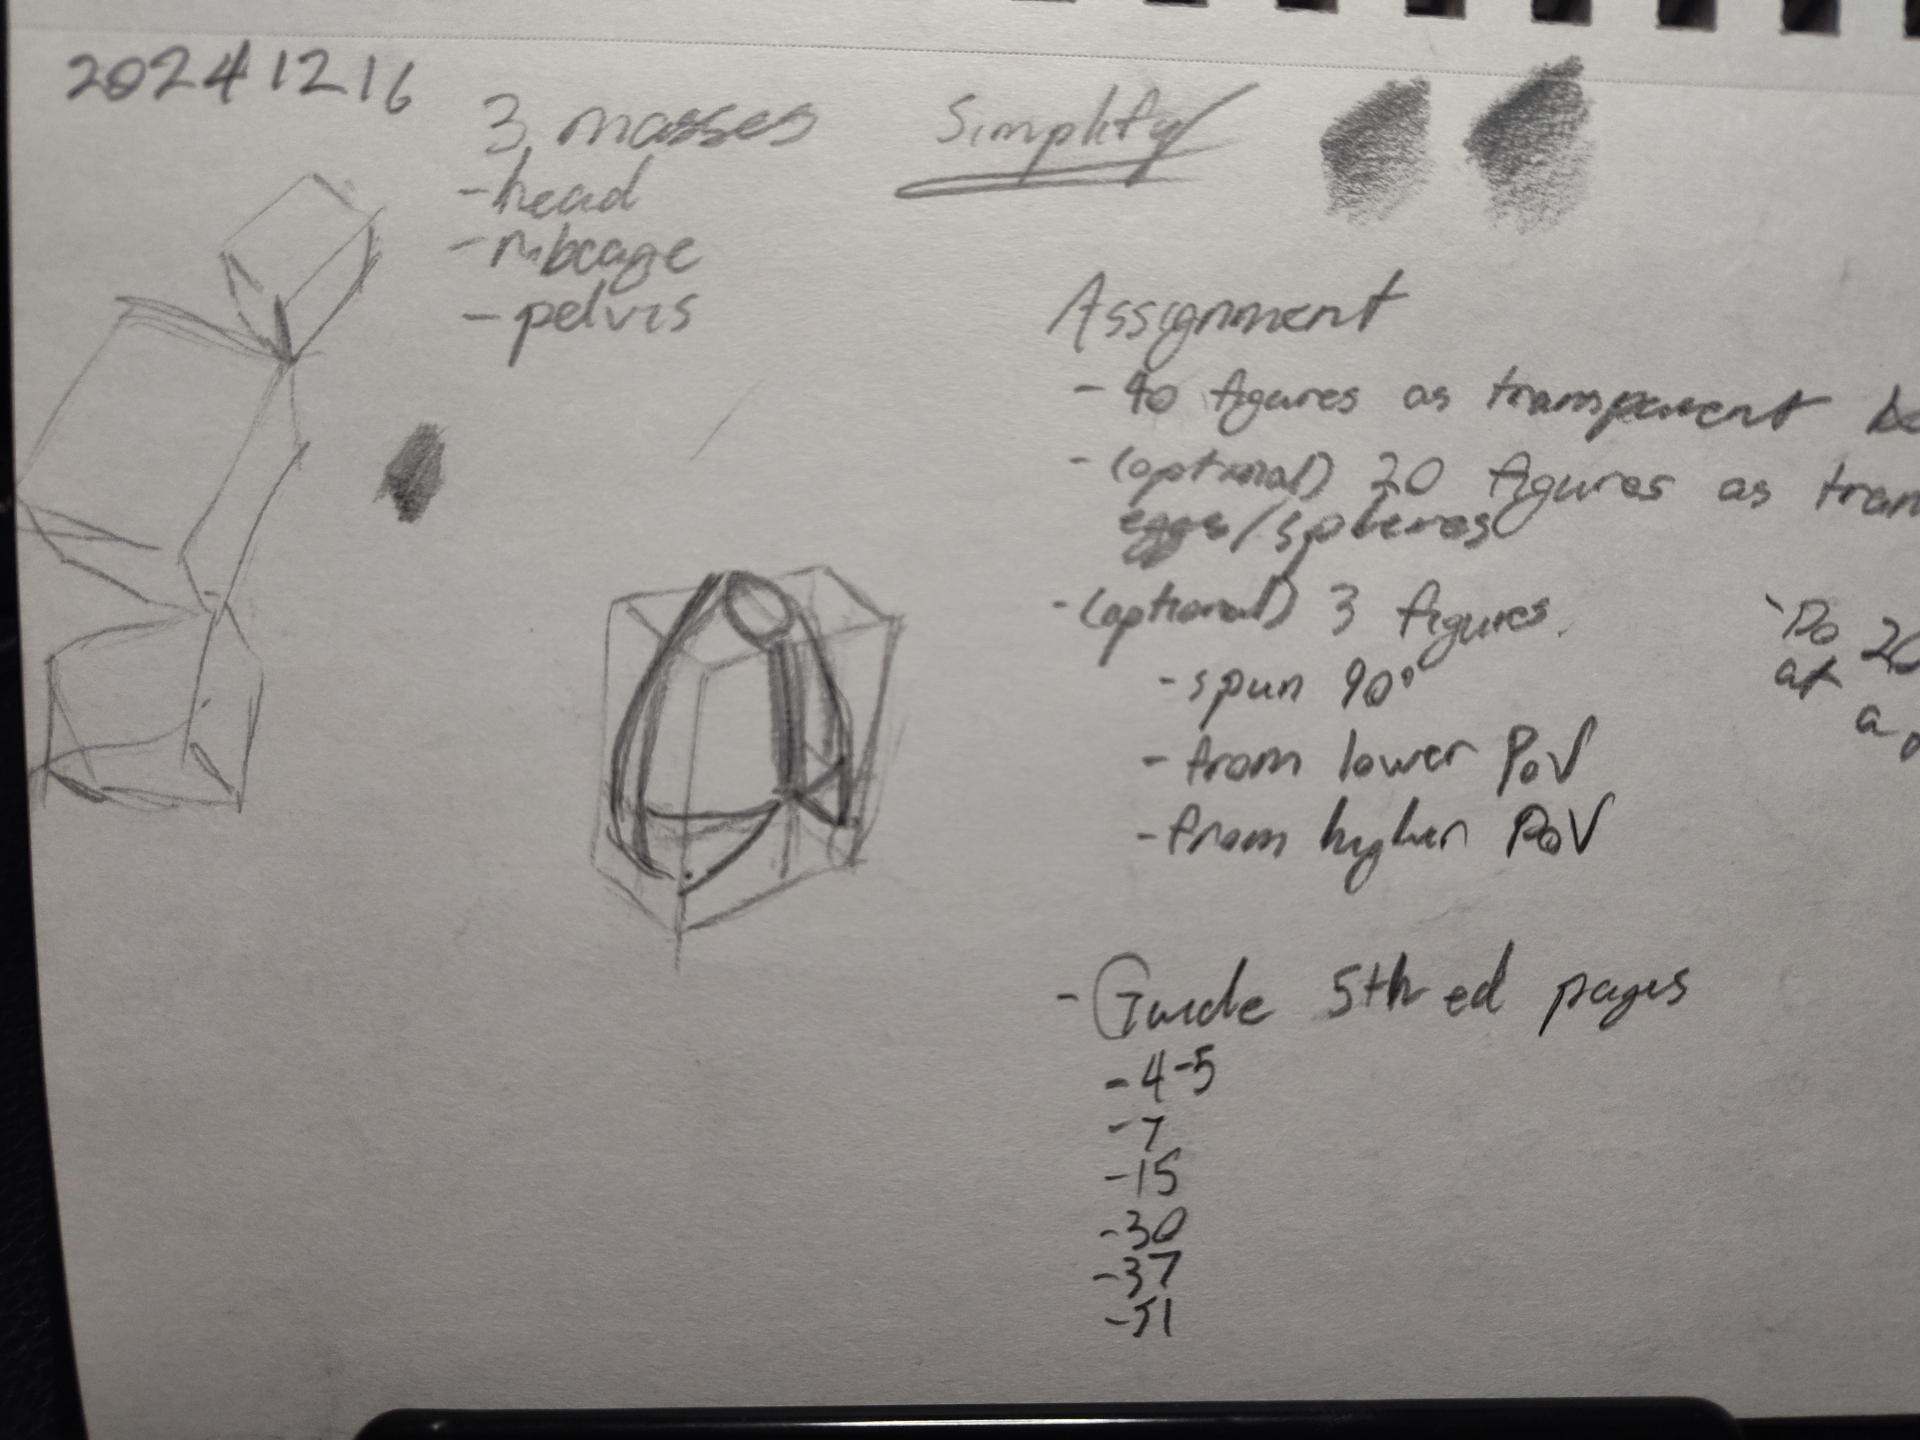 20241216
3 masses
- head
- ribcage
- pelvis
Simplify
Assignment
- 40 figures as transparent
- (optional) 20 figures as tran
eggs/spheres
- (optional) 3 figures
- spun 90°
- from lower PoV
- from higher PoV
Do 20
at
a
- Guide 5th ed pages
- 4-5
- 7
- 15
- 30
- 37
- 51